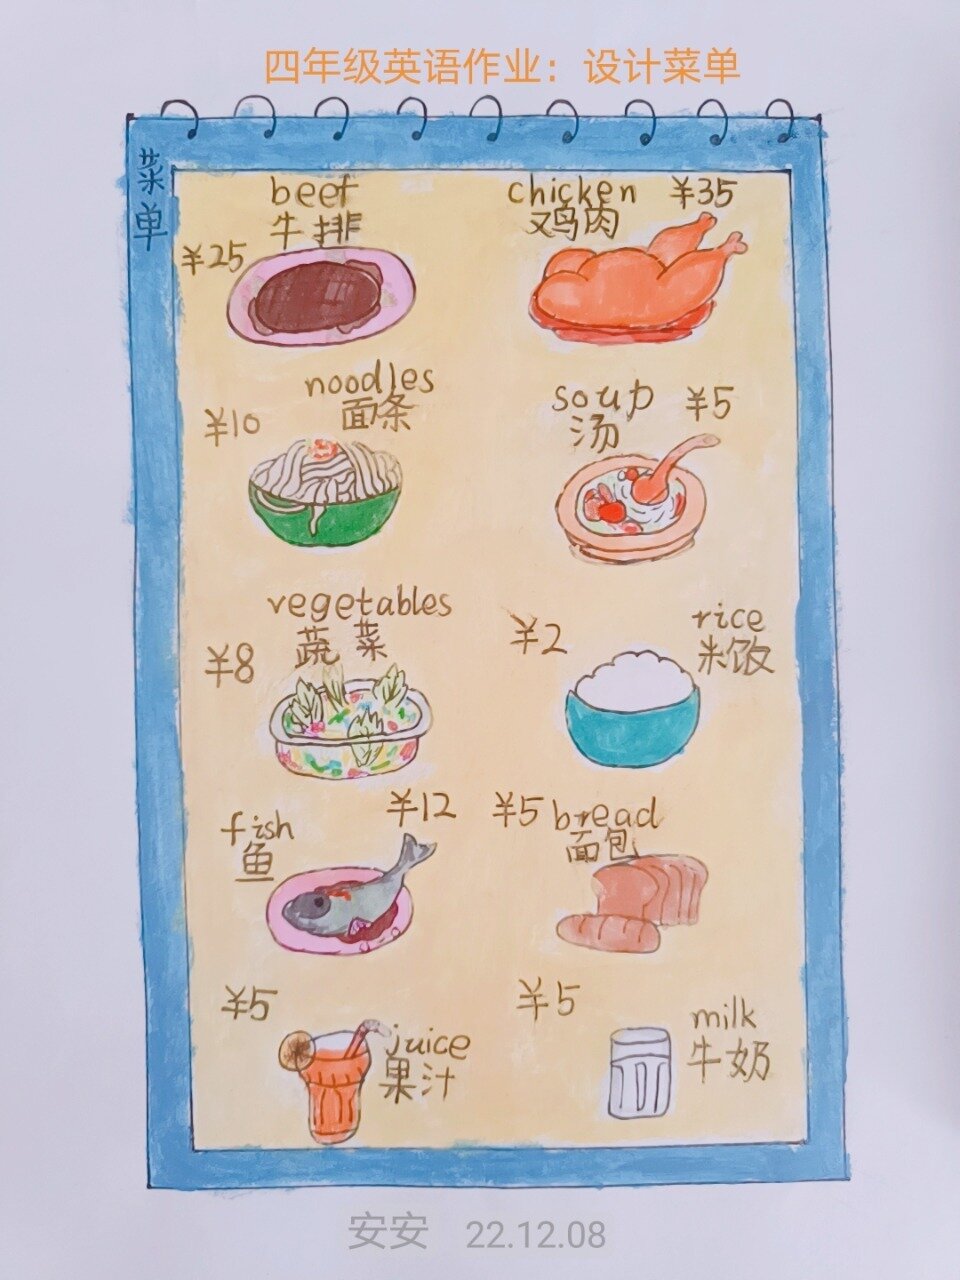 四年级英语作业：设计菜单
菜单
beef
牛排
¥25
chicken ¥35
鸡肉
noodles
面条
¥10
soup ¥5
汤
vegetables
蔬菜
¥8
¥2
rice
米饭
¥12
fish
鱼
¥5 bread
面包
¥5
juice
果汁
¥5
milk
牛奶
安安 22.12.08